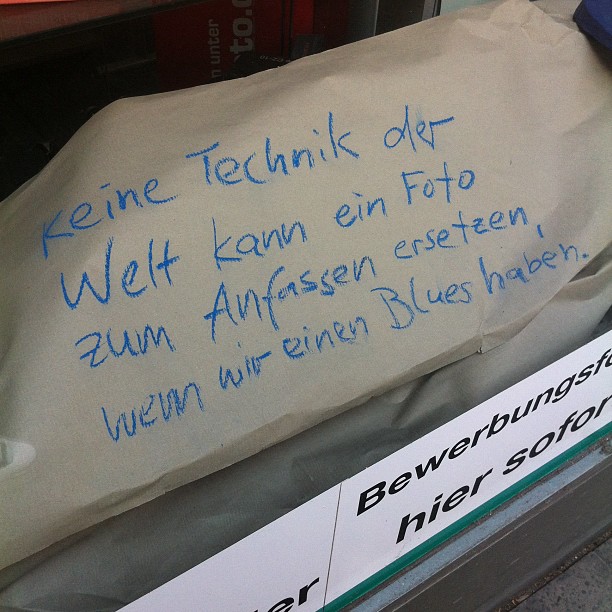 n unter
to.
Keine Technik der
Welt kann ein Foto
zum Anfassen ersetzen,
wenn wir einen Blues haben.
Bewerbungsfo
hier sofor
er